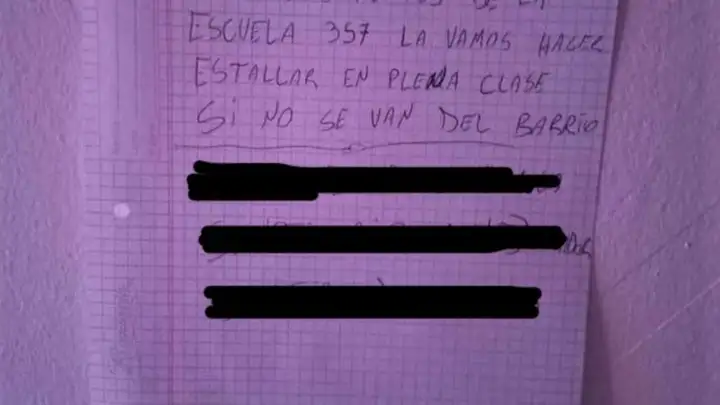 DE LA
ESCUELA 357 LA VAMOS HACER
ESTALLAR EN PLENA CLASE
SI NO SE VAN DEL BARRIO